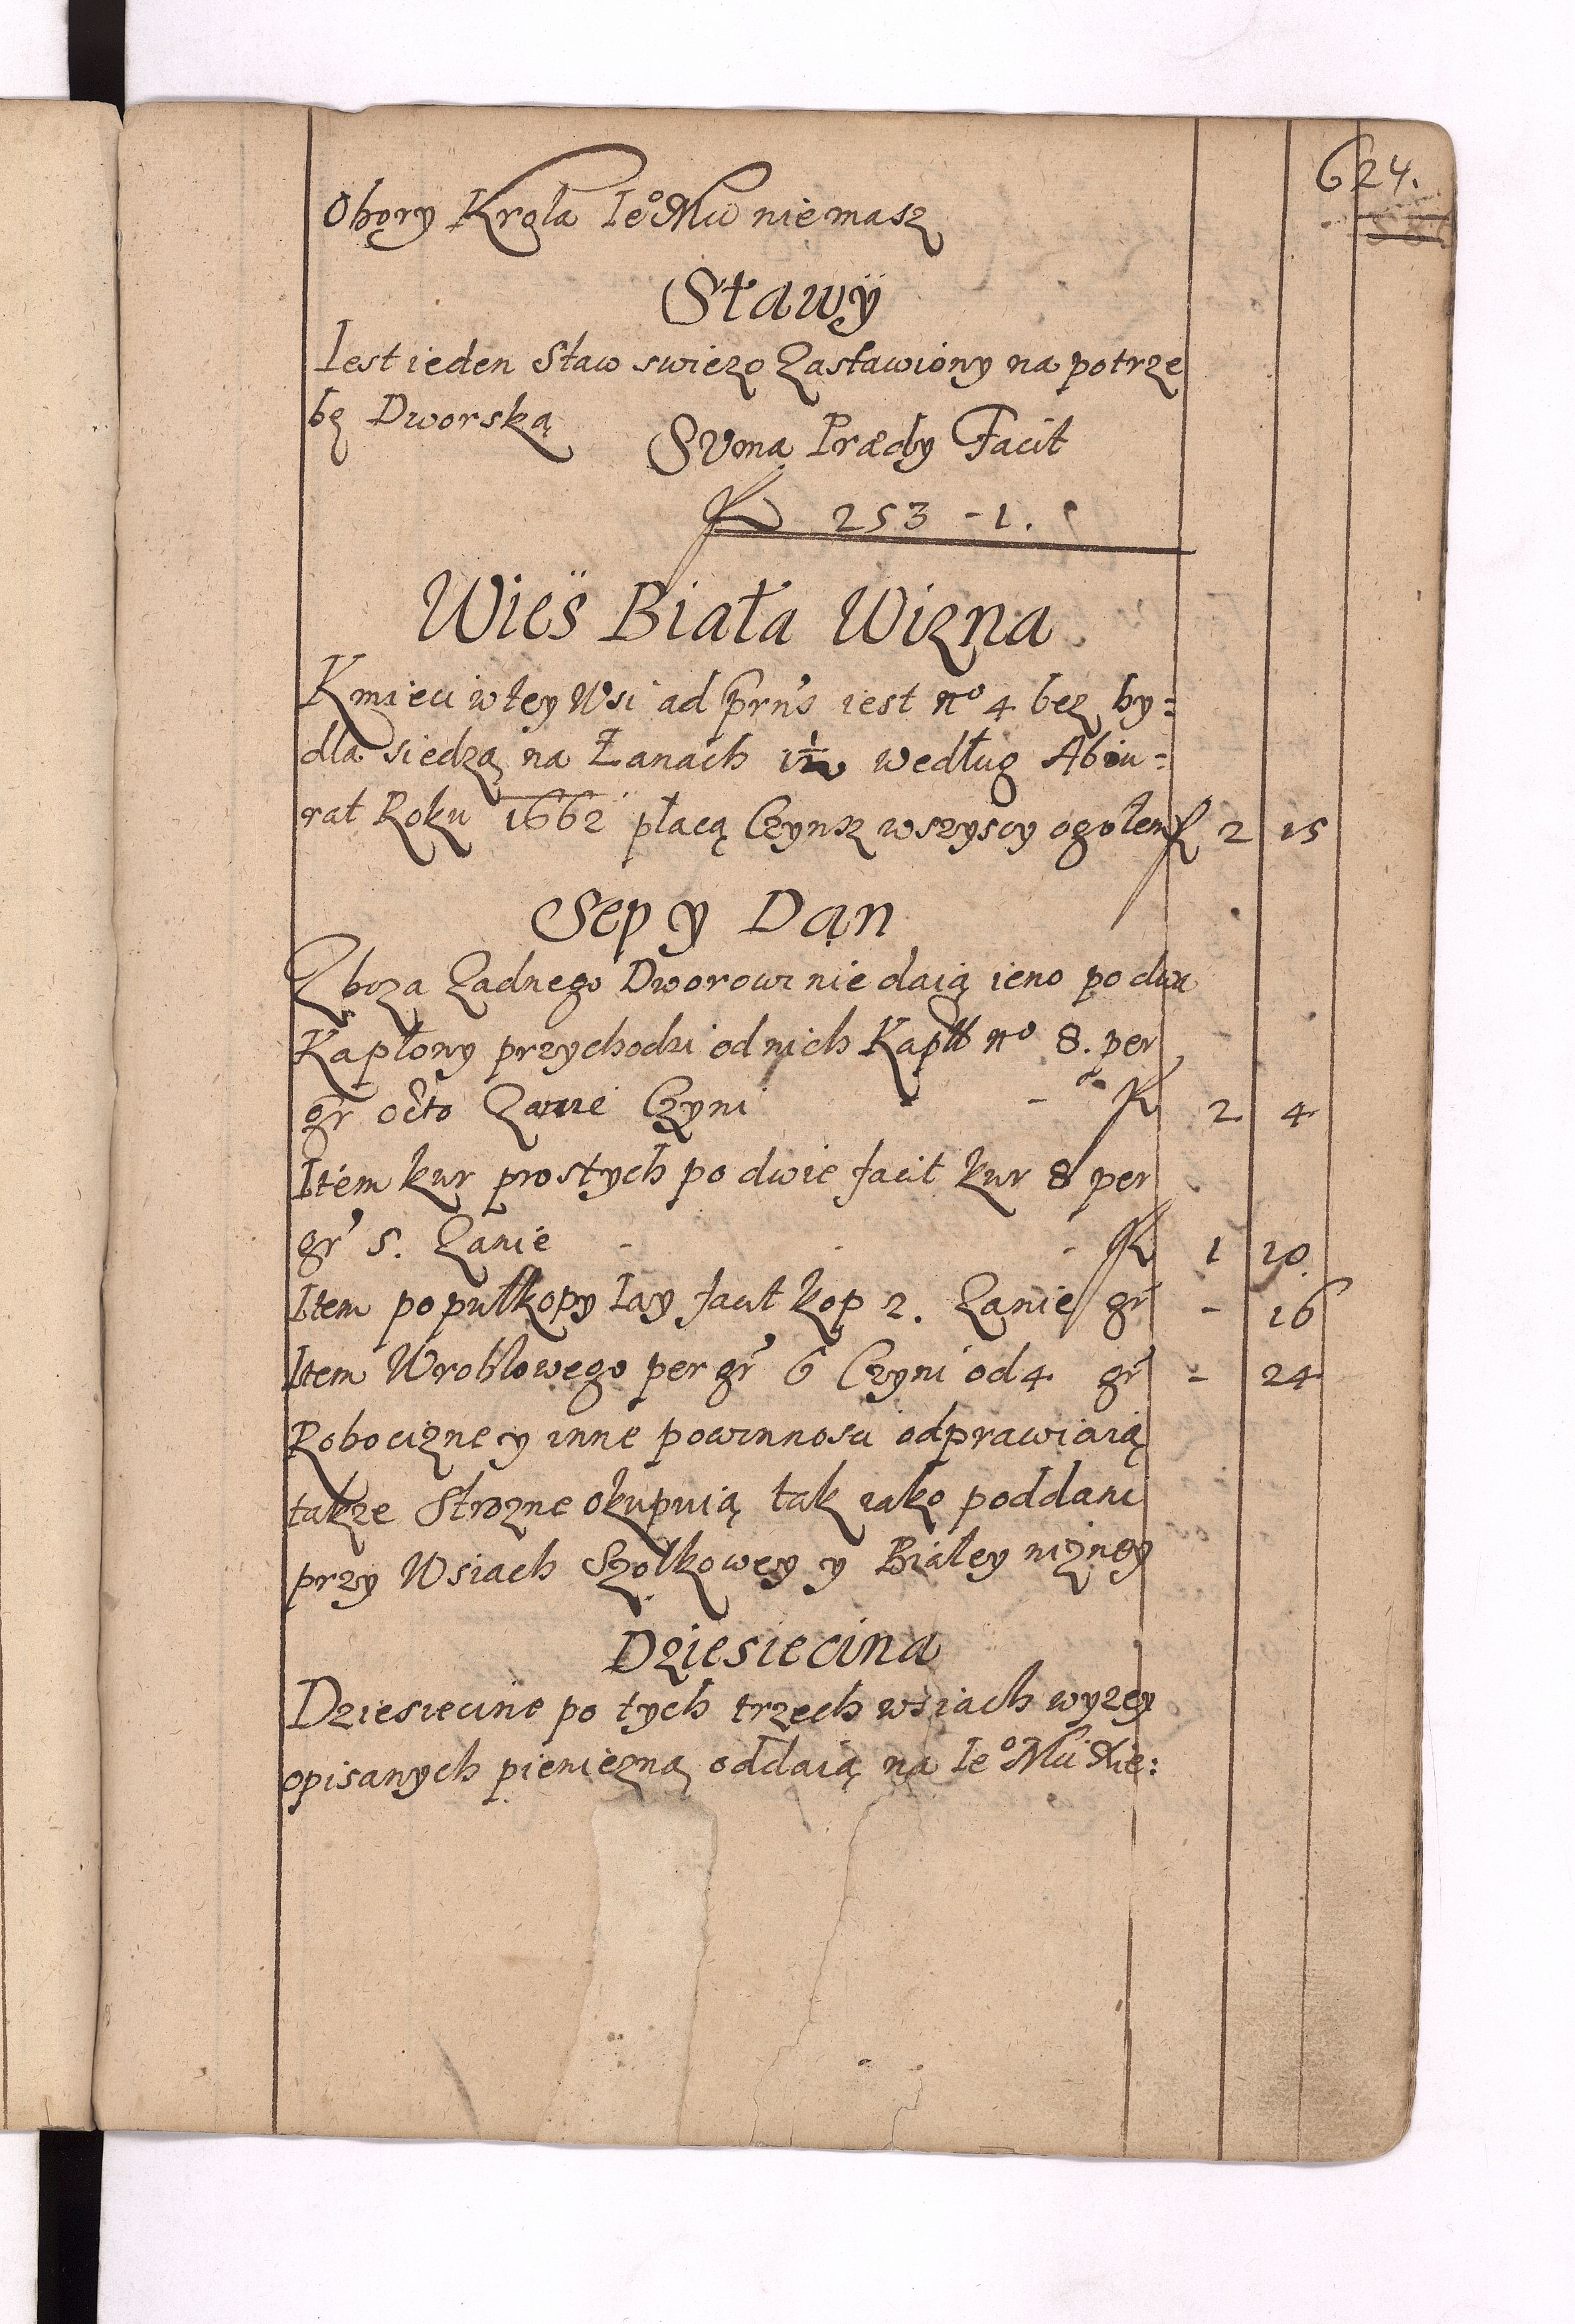 624.
Obory Krola Ie° Mci niemasz
Stawÿ
Iest ieden Staw swiezo Zastawiony na potrze
bę Dworską
Sum̃a Prædÿ Facit
fl 253 - 1.
Wieś Biała Wizna
Kmieci w tey Wsi ad prñs iest n° 4 bez by=
dła siedzą na Łanach 1½ według Abiu=
rat Roku 1662 płacą Czynsz wszyscy ogołem fl 2 15
Sep y Dan
Zboza Zadnego Dworowi nie daią ieno po dwa
Kapłony przychodzi od nich Kapłł n° 8. per
gr octo Zanie Czyni - - fl 2 4
Item kur prostych po dwie facit kur 8 per
gr 5. Zanie - - - fl 1 10
Item po pułkopy Iay facit kop 2. Zanie gr - 16
Item Wroblowego per gr 6 Czyni od 4 gr - 24
Robocizne y inne powinnosci odprawiaią
takze Strozne okupuią tak iako poddani
przy Wsiach Szołkowey y Białey nizney
Dziesiecina
Dziesiecine po tych trzech wsiach wyzey
opisanych pieniezną oddaią na Ie° Mci Xie: